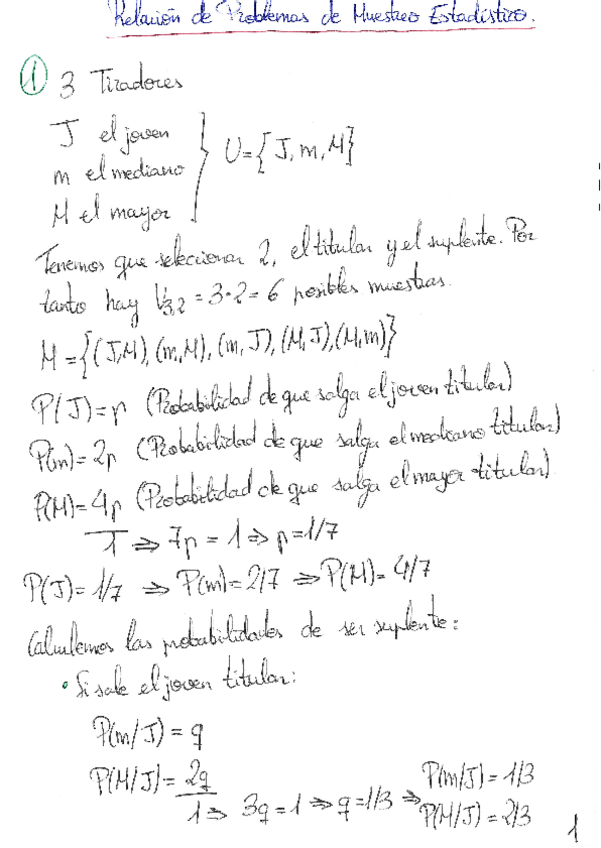 Relación de Problemas de Muestreo Estadístico.
① 3 Tiradores
J el joven
m el mediano
M el mayor
U={J, m, M}
Tenemos que seleccionar 2, el titular y el suplente. Por
tanto hay V3,2 = 3·2 = 6 posibles muestras.
M = {(J,M), (m,M), (m,J), (M,J), (M,m)}
P(J)=p (Probabilidad de que salga el joven titular)
P(m)=2p (Probabilidad de que salga el mediano titular)
P(M)=4p (Probabilidad de que salga el mayor titular)
1 ⇒ 7p = 1 ⇒ p=1/7
P(J)=1/7 ⇒ P(m)=2/7 ⇒ P(M)=4/7
Calculemos las probabilidades de ser suplente:
• Si sale el joven titular:
P(m/J) = q
P(M/J) = 2q
1 ⇒ 3q=1 ⇒ q=1/3 ⇒
P(m/J) = 1/3
P(M/J) = 2/3
1